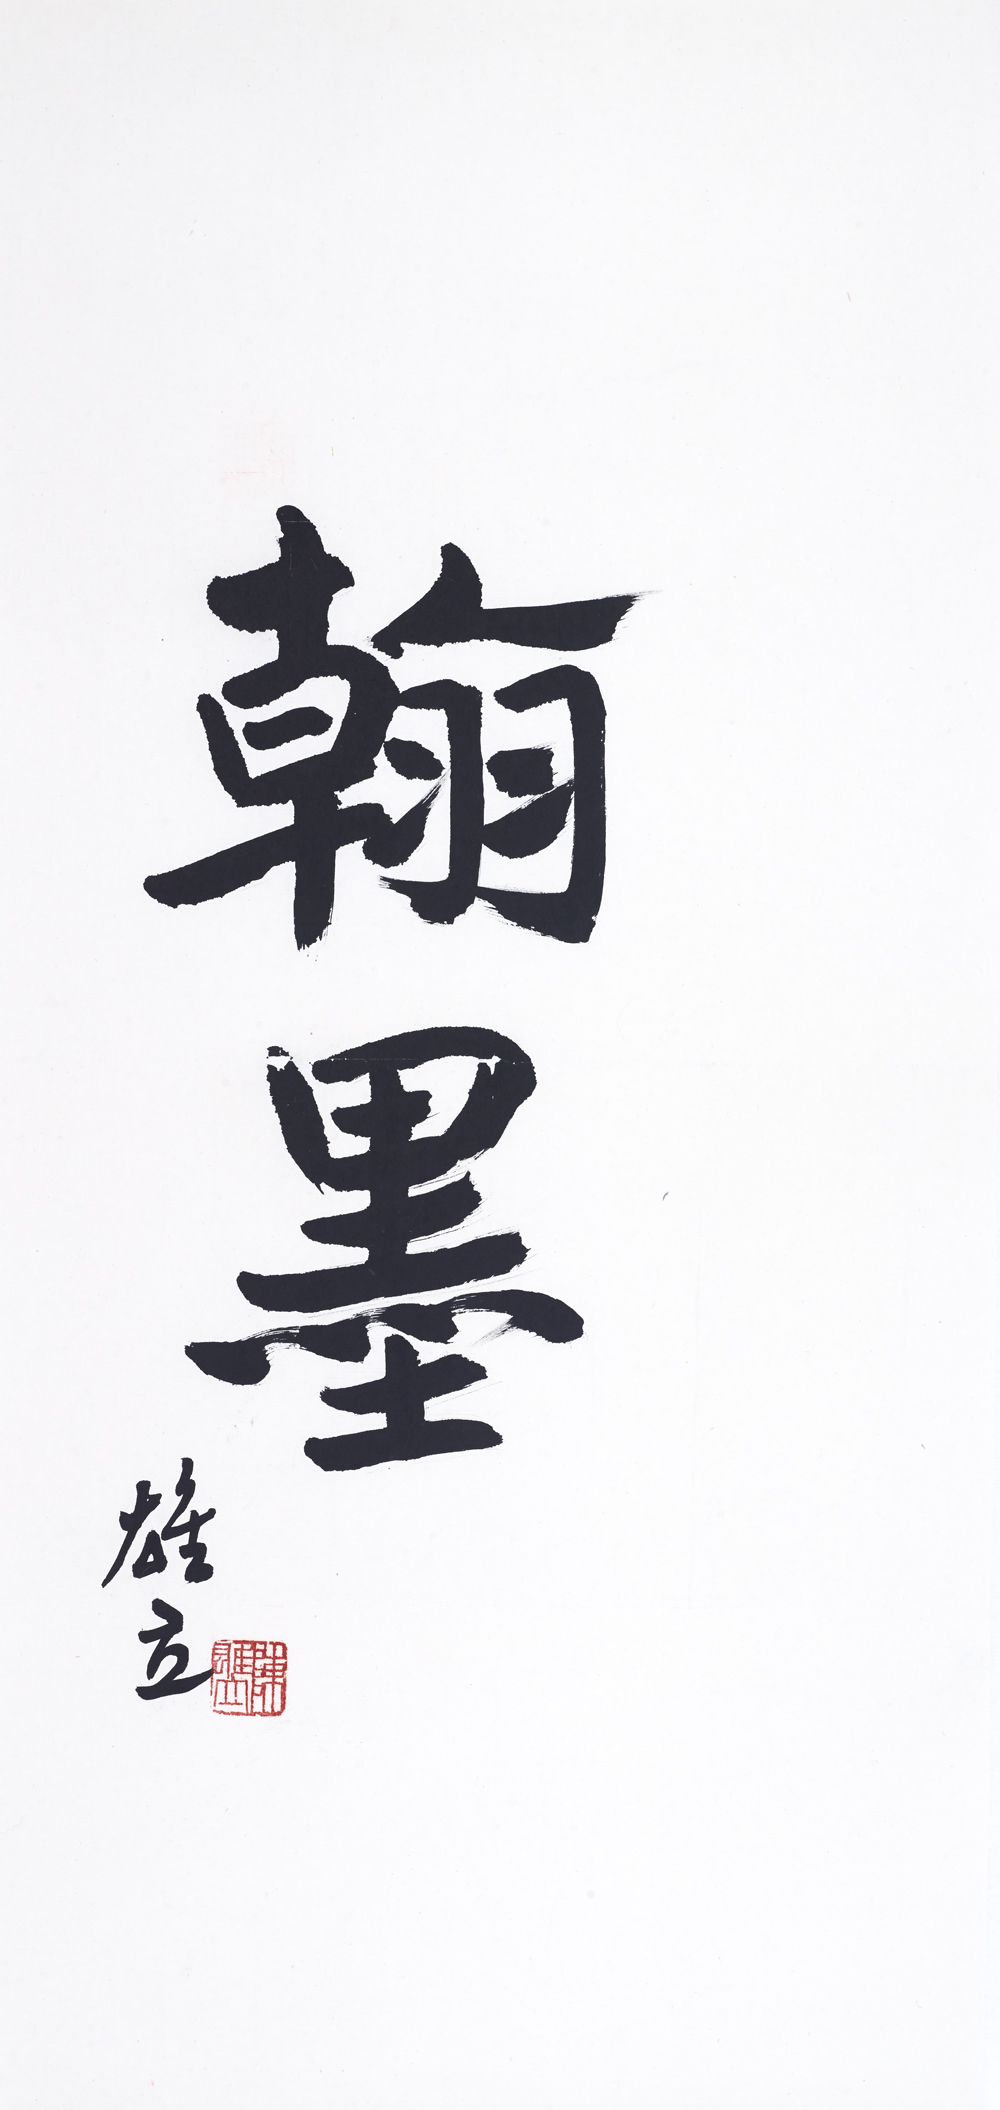 翰墨
雄立